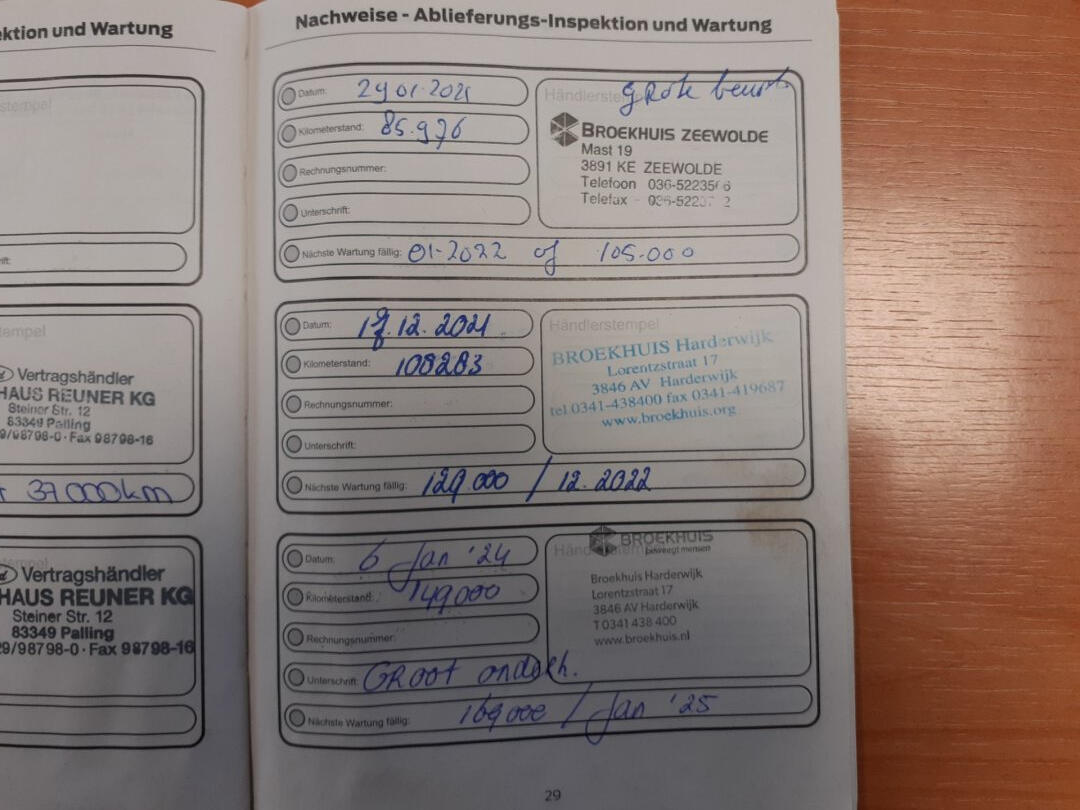 ektion und Wartung
stempel
Vertragshändler
HAUS REUNER KG
Steiner Str. 12
83349 Palling
9/98798-0 · Fax 98798-16
37000km
Vertragshändler
HAUS REUNER KG
Steiner Str. 12
83349 Palling
29/98798-0 · Fax 98798-16
Nachweise - Ablieferungs-Inspektion und Wartung
Datum: 29 01·2021
Kilometerstand: 85.976
Rechnungsnummer:
Unterschrift:
Händlerstempel
grote beurt
BROEKHUIS ZEEWOLDE
Mast 19
3891 KE ZEEWOLDE
Telefoon 036-52235 6
Telefax 036-522 2
Nächste Wartung fällig: 01-2022 of 105.000
Datum: 12.2021
Kilometerstand: 108283
Rechnungsnummer:
Unterschrift:
Händlerstempel
BROEKHUIS Harderwijk
Lorentzstraat 17
3846 AV Harderwijk
tel.0341-438400 fax 0341-419687
www.broekhuis.org
Nächste Wartung fällig: 129.000 / 12.2022
Datum: 6 Jan '24
Kilometerstand: 149000
Rechnungsnummer:
Unterschrift: GROOT onderh.
Händlerstempel
BROEKHUIS
beweegt mensen
Broekhuis Harderwijk
Lorentzstraat 17
3846 AV Harderwijk
T 0341 438 400
www.broekhuis.nl
Nächste Wartung fällig: 169000 / Jan '25
29